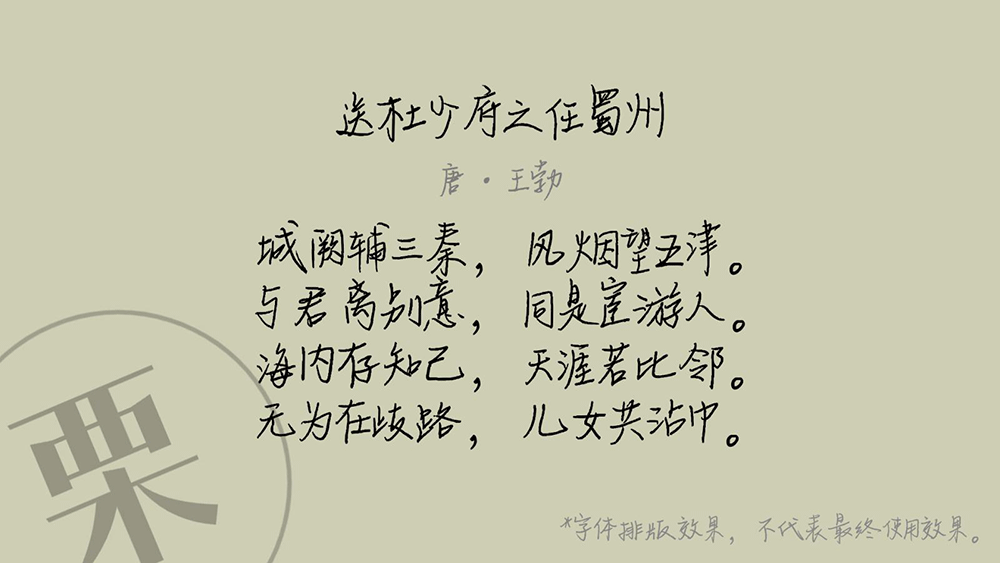 送杜少府之任蜀州
唐·王勃
城阙辅三秦，风烟望五津。
与君离别意，同是宦游人。
海内存知己，天涯若比邻。
无为在歧路，儿女共沾巾。
栗
*字体排版效果，不代表最终使用效果。